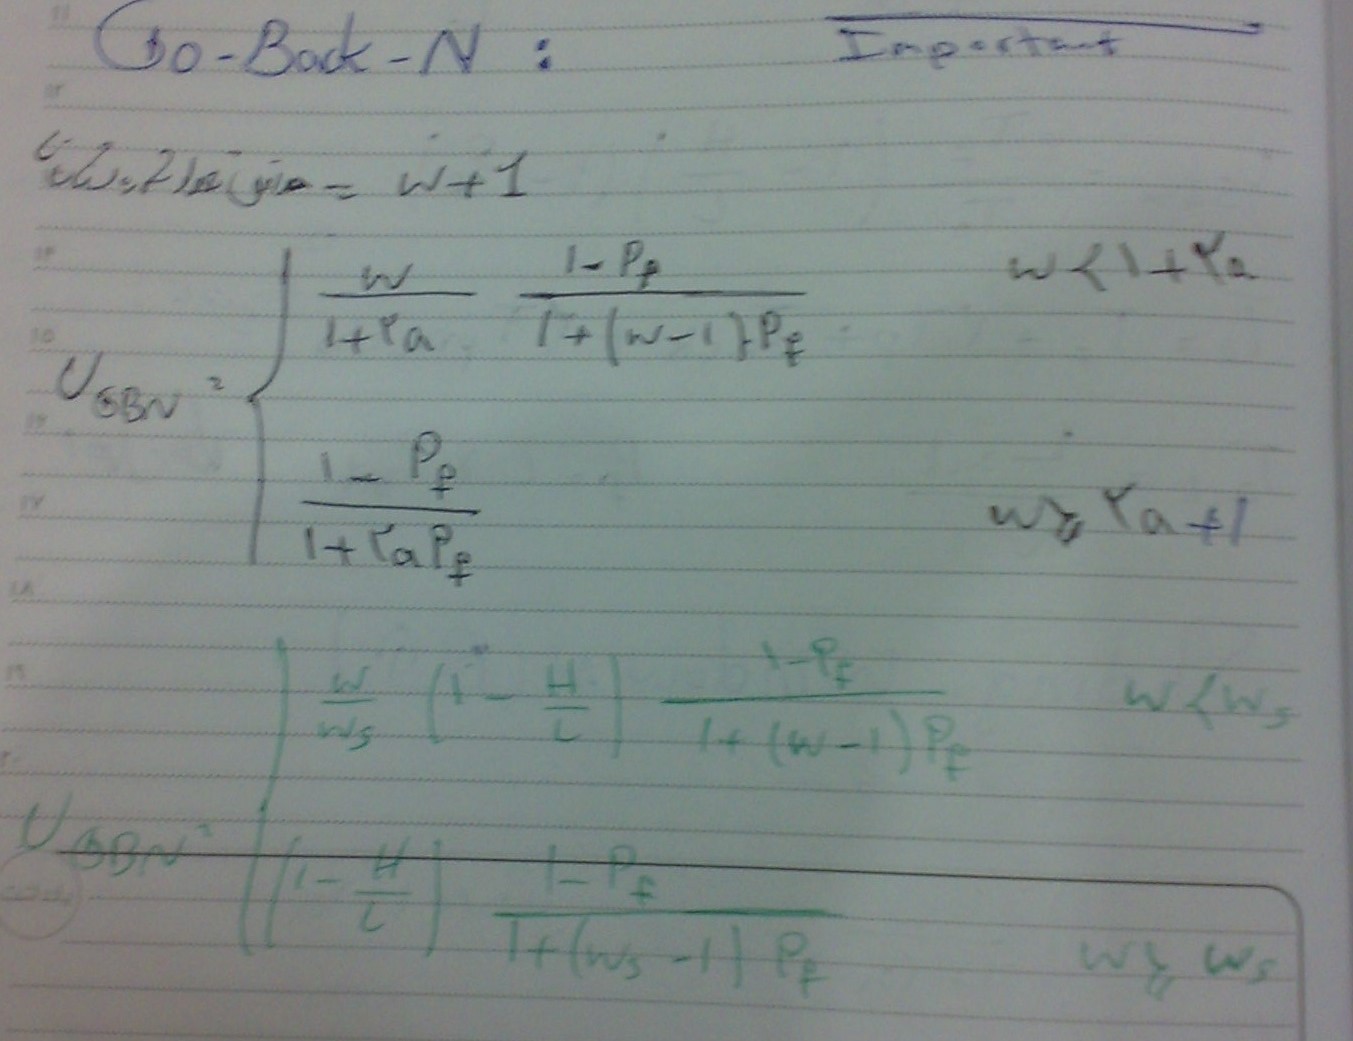 Go-Back-N :
Important
= W+1
U_GBN = { W/(1+۲a) (1-P_f)/(1+(W-1)P_f) W<1+۲a
(1-P_f)/(1+۲aP_f) W≥۲a+1
U_GBN = { W/W_s (1-H/L) (1-P_f)/(1+(W-1)P_f) W<W_s
(1-H/L) (1-P_f)/(1+(W_s-1)P_f) W≥W_s